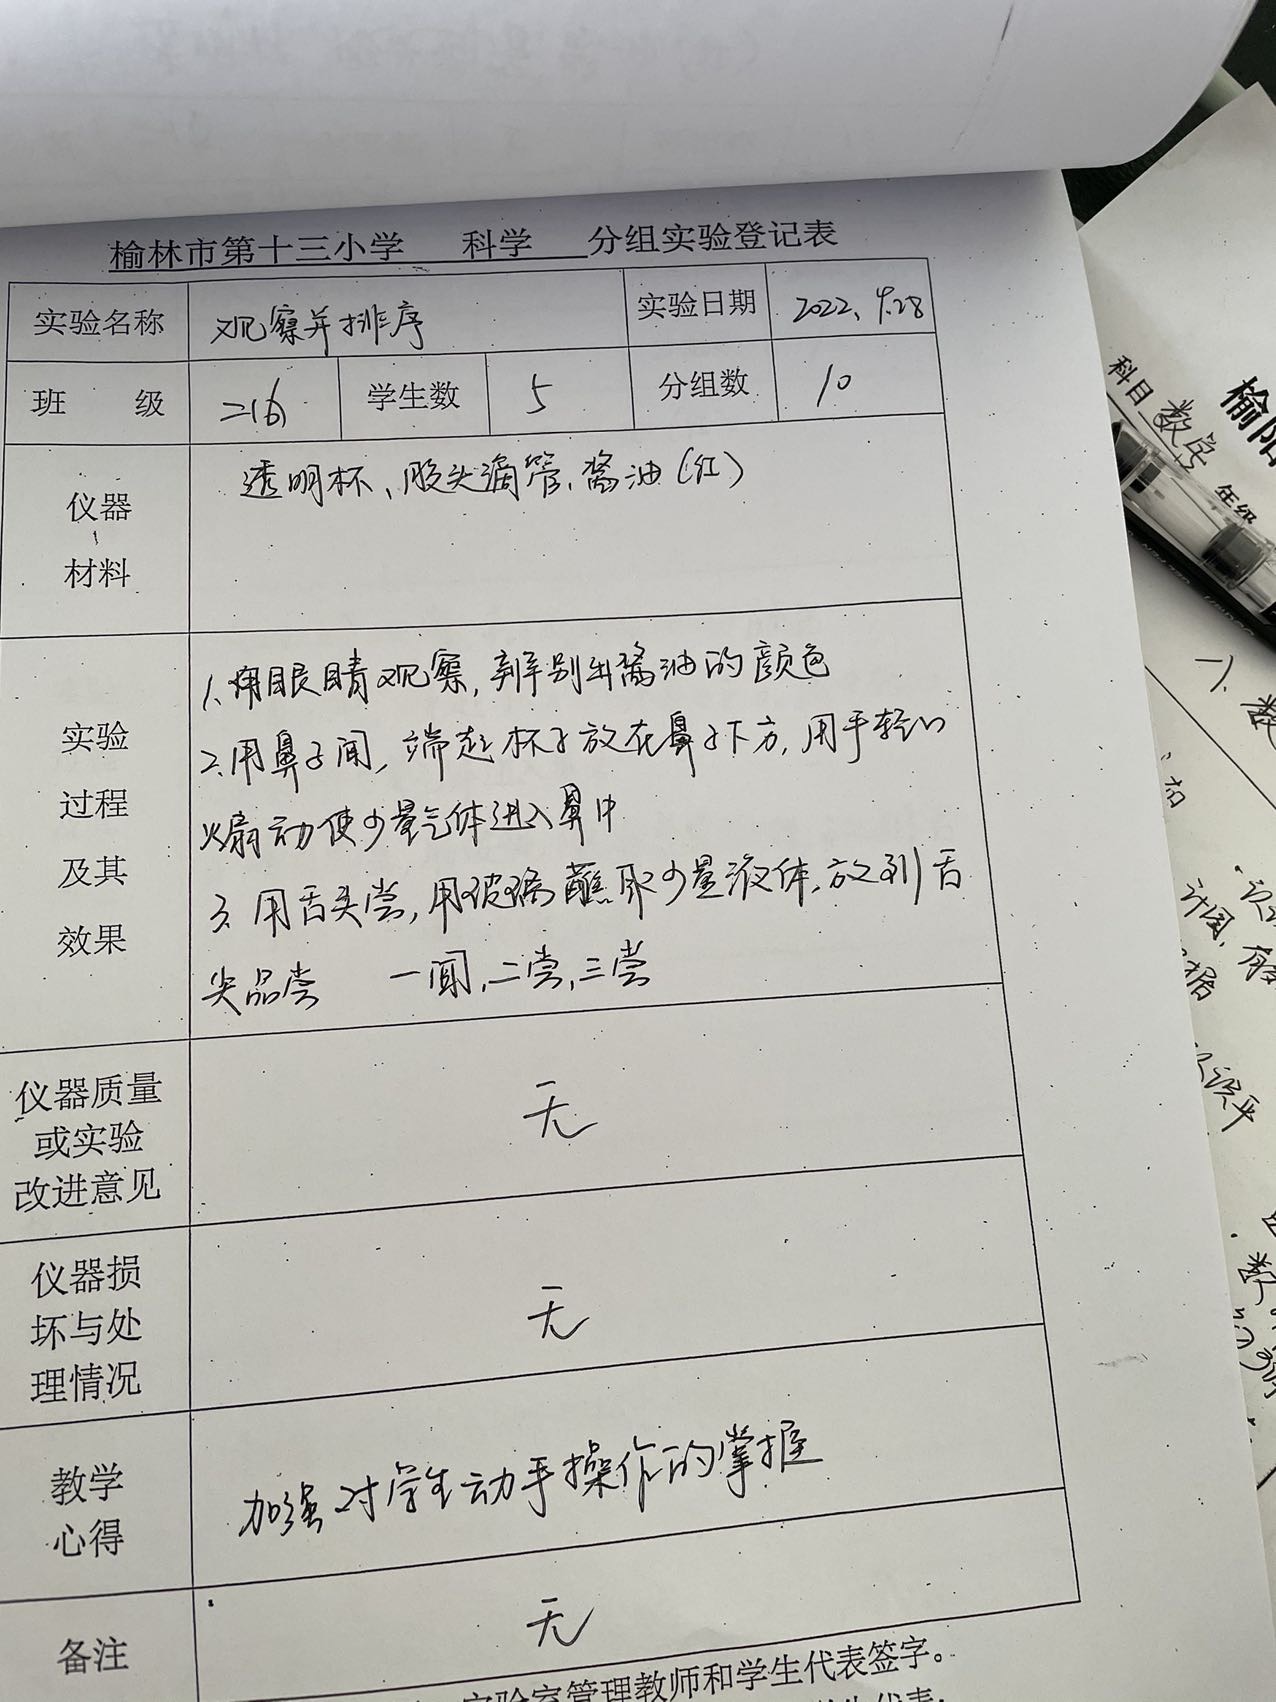 榆林市第十三小学 科学 分组实验登记表
实验名称 观察并排序 实验日期 2022.9.28
班 级 二(6) 学生数 5 分组数 10
仪器
材料
透明杯、胶头滴管、酱油(红)
实验
过程
及其
效果
1.用眼睛观察,辨别出酱油的颜色
2.用鼻子闻,端起杯子放在鼻子下方,用手轻轻
煽动使少量气体进入鼻中
3.用舌头尝,用玻璃蘸取少量液体,放到舌
尖品尝 一闻,二尝,三尝
仪器质量
或实验
改进意见
无
仪器损
坏与处
理情况
无
教学
心得
加强对学生动手操作的掌握
备注
无
实验室管理教师和学生代表签字。
科目 数学
年级
榆阳